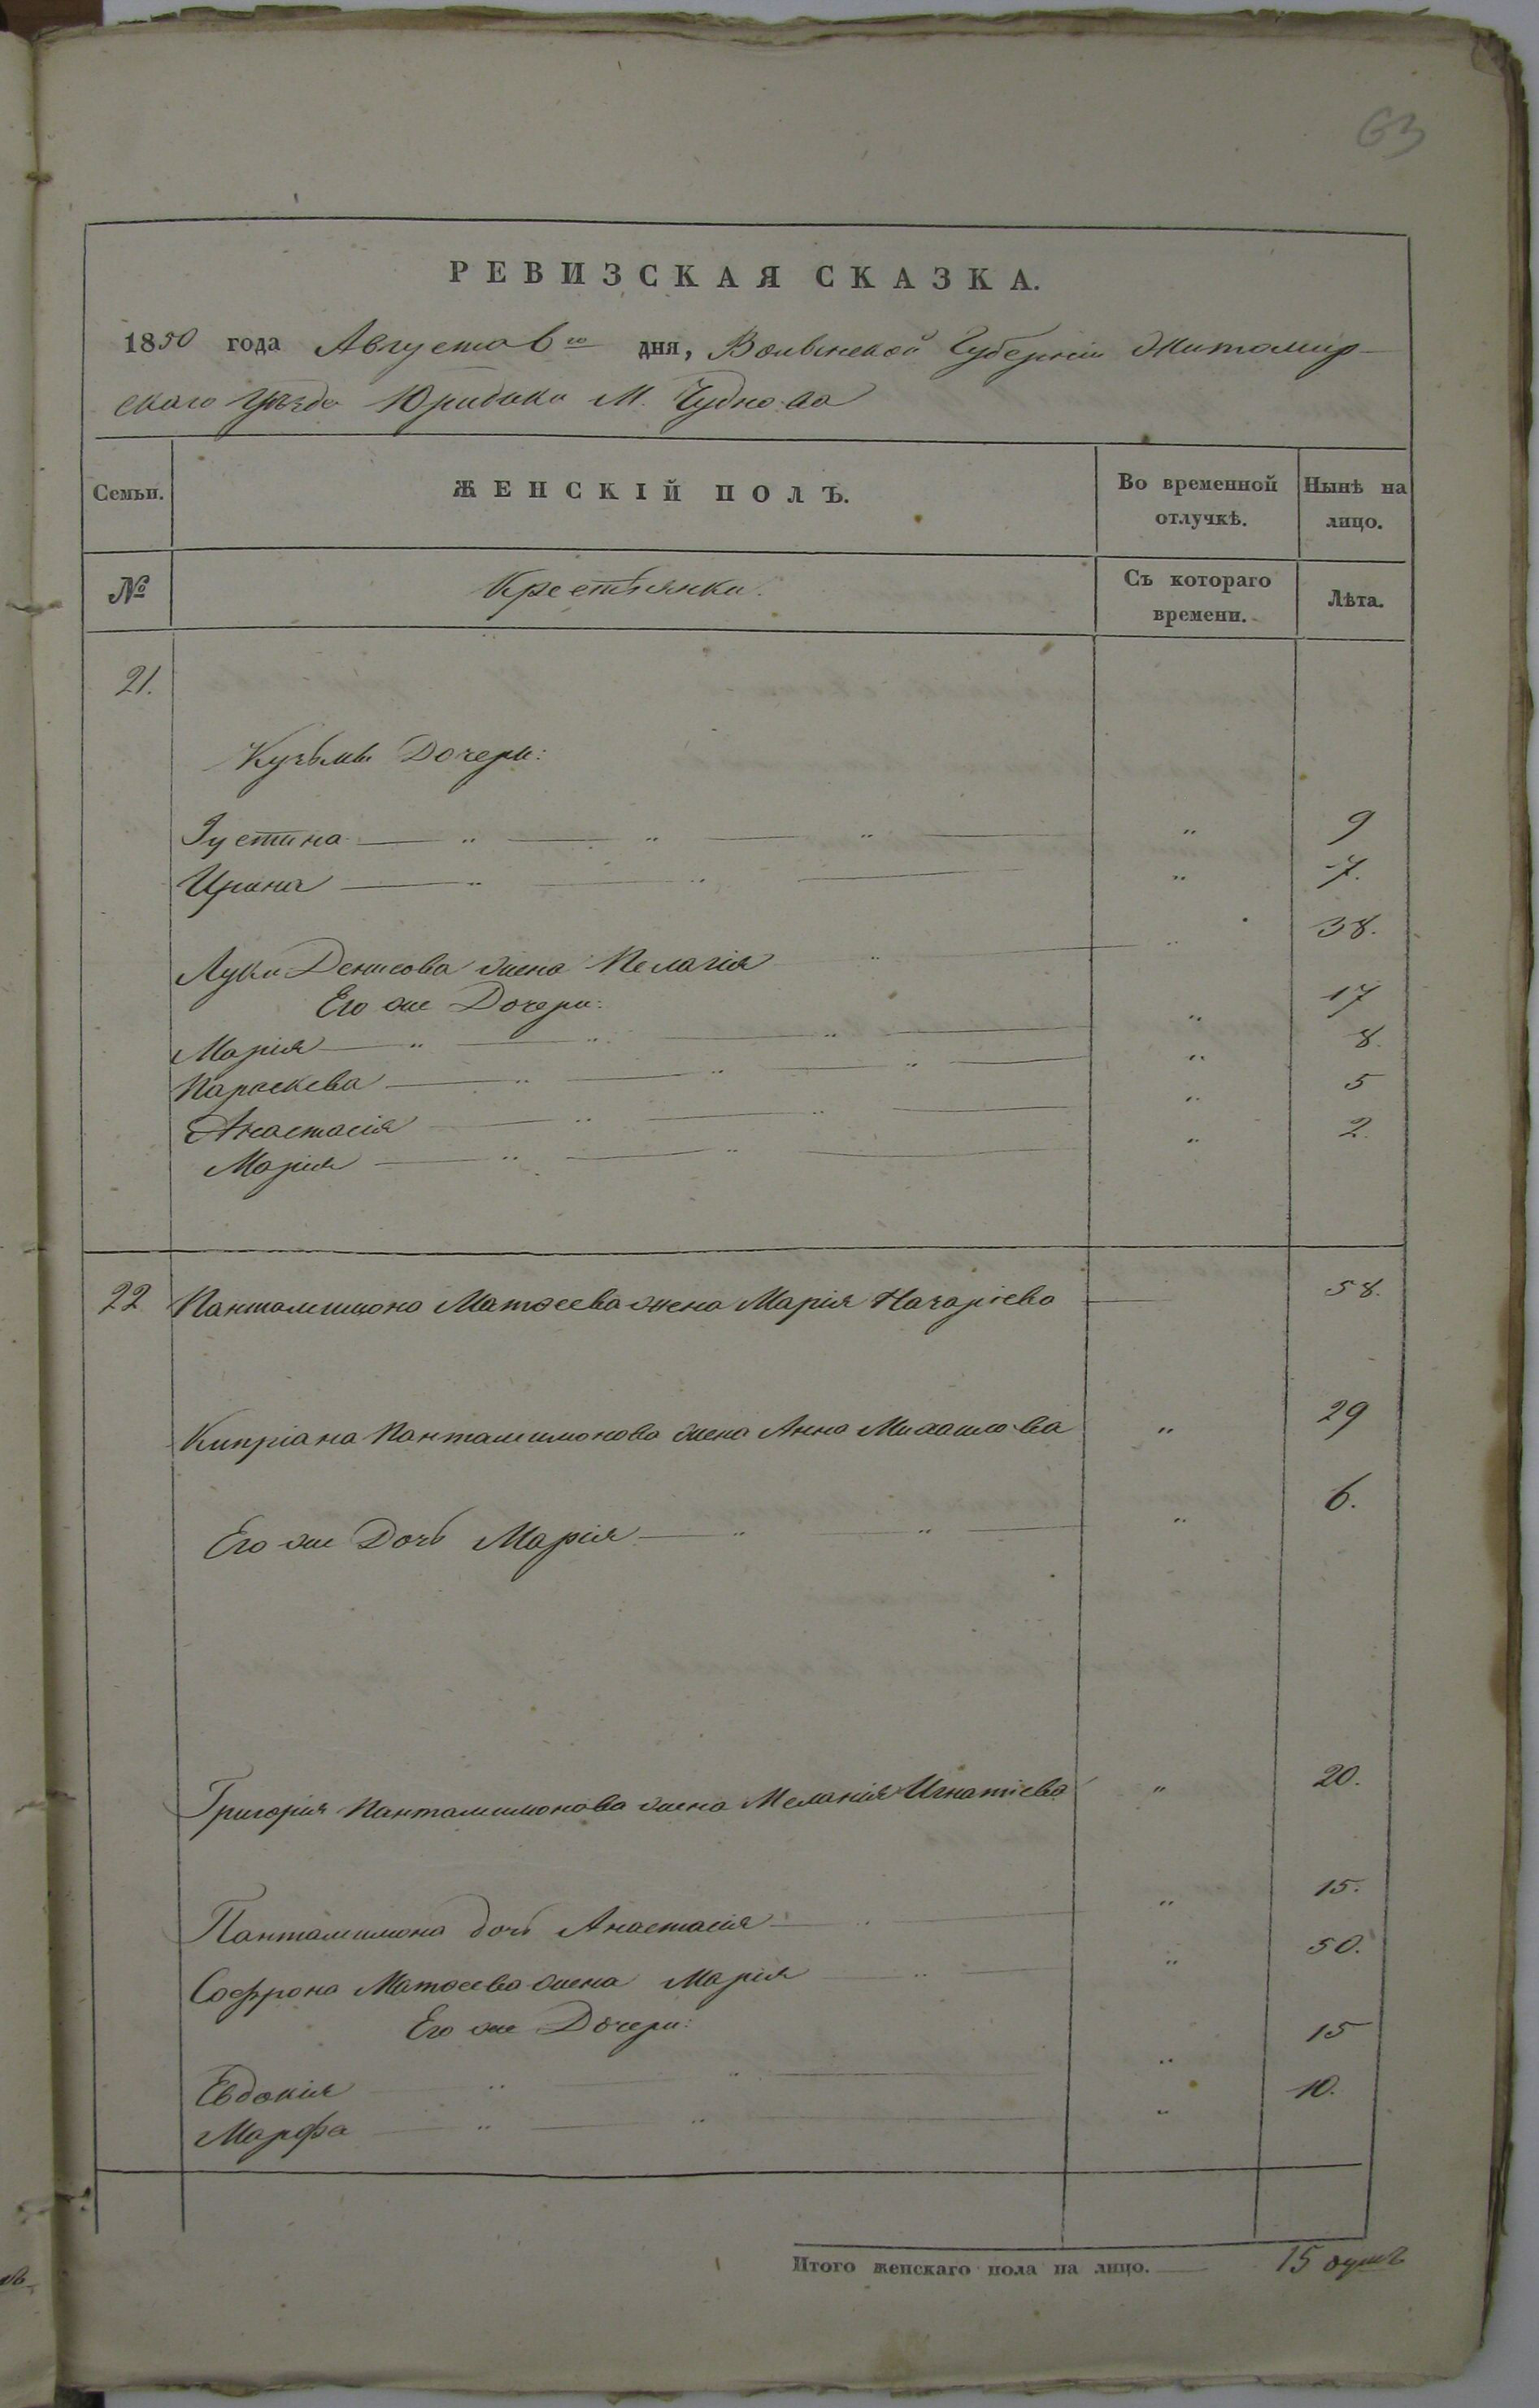 63
РЕВИЗСКАЯ СКАЗКА.
1850 года Августа 6го дня, Волынской Губернии Житомир-
скаго Уѣзда Юридика М. Чуднова
Семьи. ЖЕНСКІЙ ПОЛЪ. Во временной отлучкѣ. Нынѣ на лицо.
№ Крестьянки. Съ котораго времени. Лѣта.
21.
Кузьмы Дочери:
Іустина " 9
Ирина " 7.
Луки Денисова жена Пелагія " 38.
Его же Дочери:
Марія " 17
Параскева " 8.
Анастасія " 5
Марія " 2.
22 Панталимона Матѳеева жена Марія Назаріева 58.
Кипріана Панталимонова жена Анна Михаилова " 29
Его же Дочь Марія " 6.
Григорія Панталимонова жена Меланія Игнатіева " 20.
Панталимона дочь Анастасія " 15.
Софрона Матѳеева жена Марія " 50.
Его же Дочери:
Евдокія " 15
Марфа " 10.
Итого женскаго пола на лицо. 15 душъ